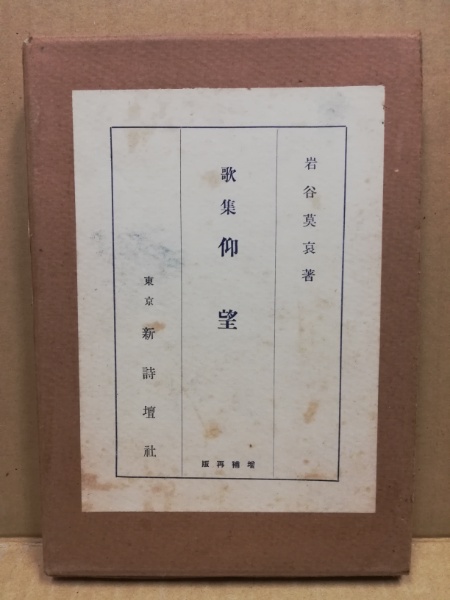 岩谷莫哀著
歌集 仰望
東京 新詩壇社
版再補増